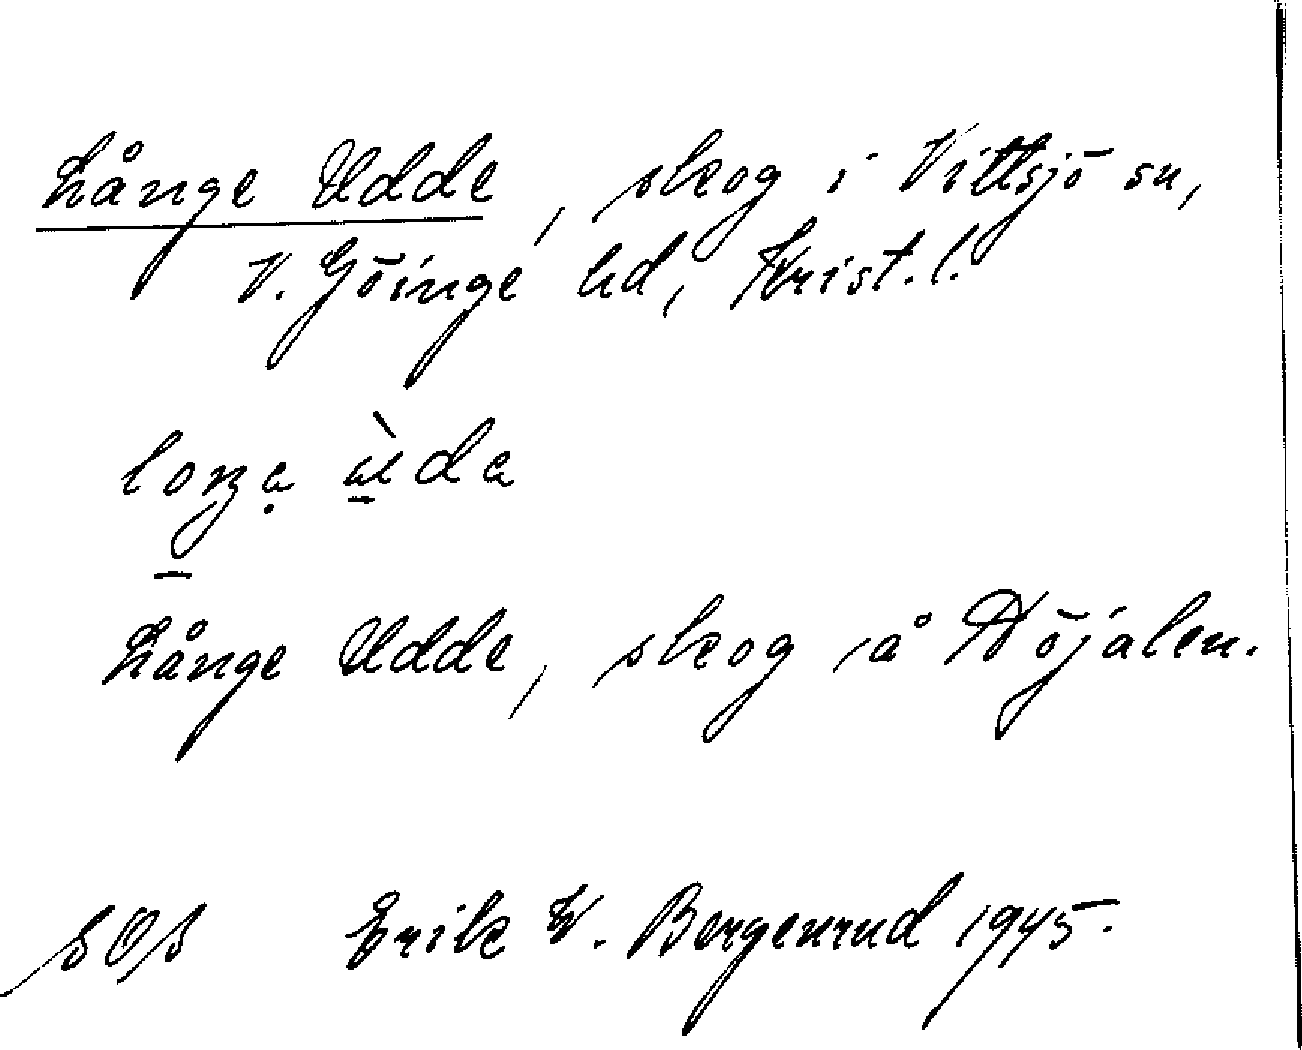 Långe Udde, skog i Vittsjö sn,
V. Göinge hd, Krist. l.
Långe Udde, skog på Höjalen.
SOS Erik W. Bergenrud 1945.